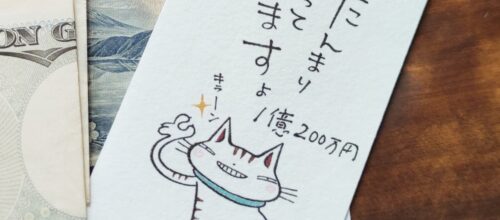 たんまり
って
ますよ
1億200万円
キラーン
ON G